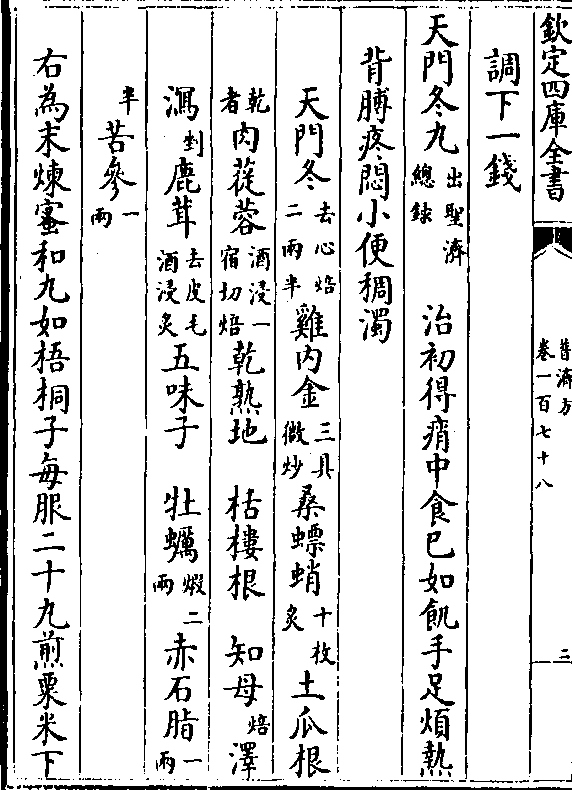 欽定四庫全書
普濟方
卷一百七十八
三
調下一錢
天門冬丸出聖濟總錄 治初得痟中食已如飢手足煩熱
背膊疼悶小便稠濁
天門冬去心焙二兩半 雞内金三具微炒 桑螵蛸十枚炙 土瓜根
乾者肉蓯蓉酒浸一宿切焙 乾熟地 枯樓根 知母焙 澤
瀉剉 鹿茸去皮毛酒浸炙 五味子 牡蠣煅二兩 赤石脂一兩
半 苦參一兩
右為末煉蜜和丸如梧桐子每服二十丸煎粟米下